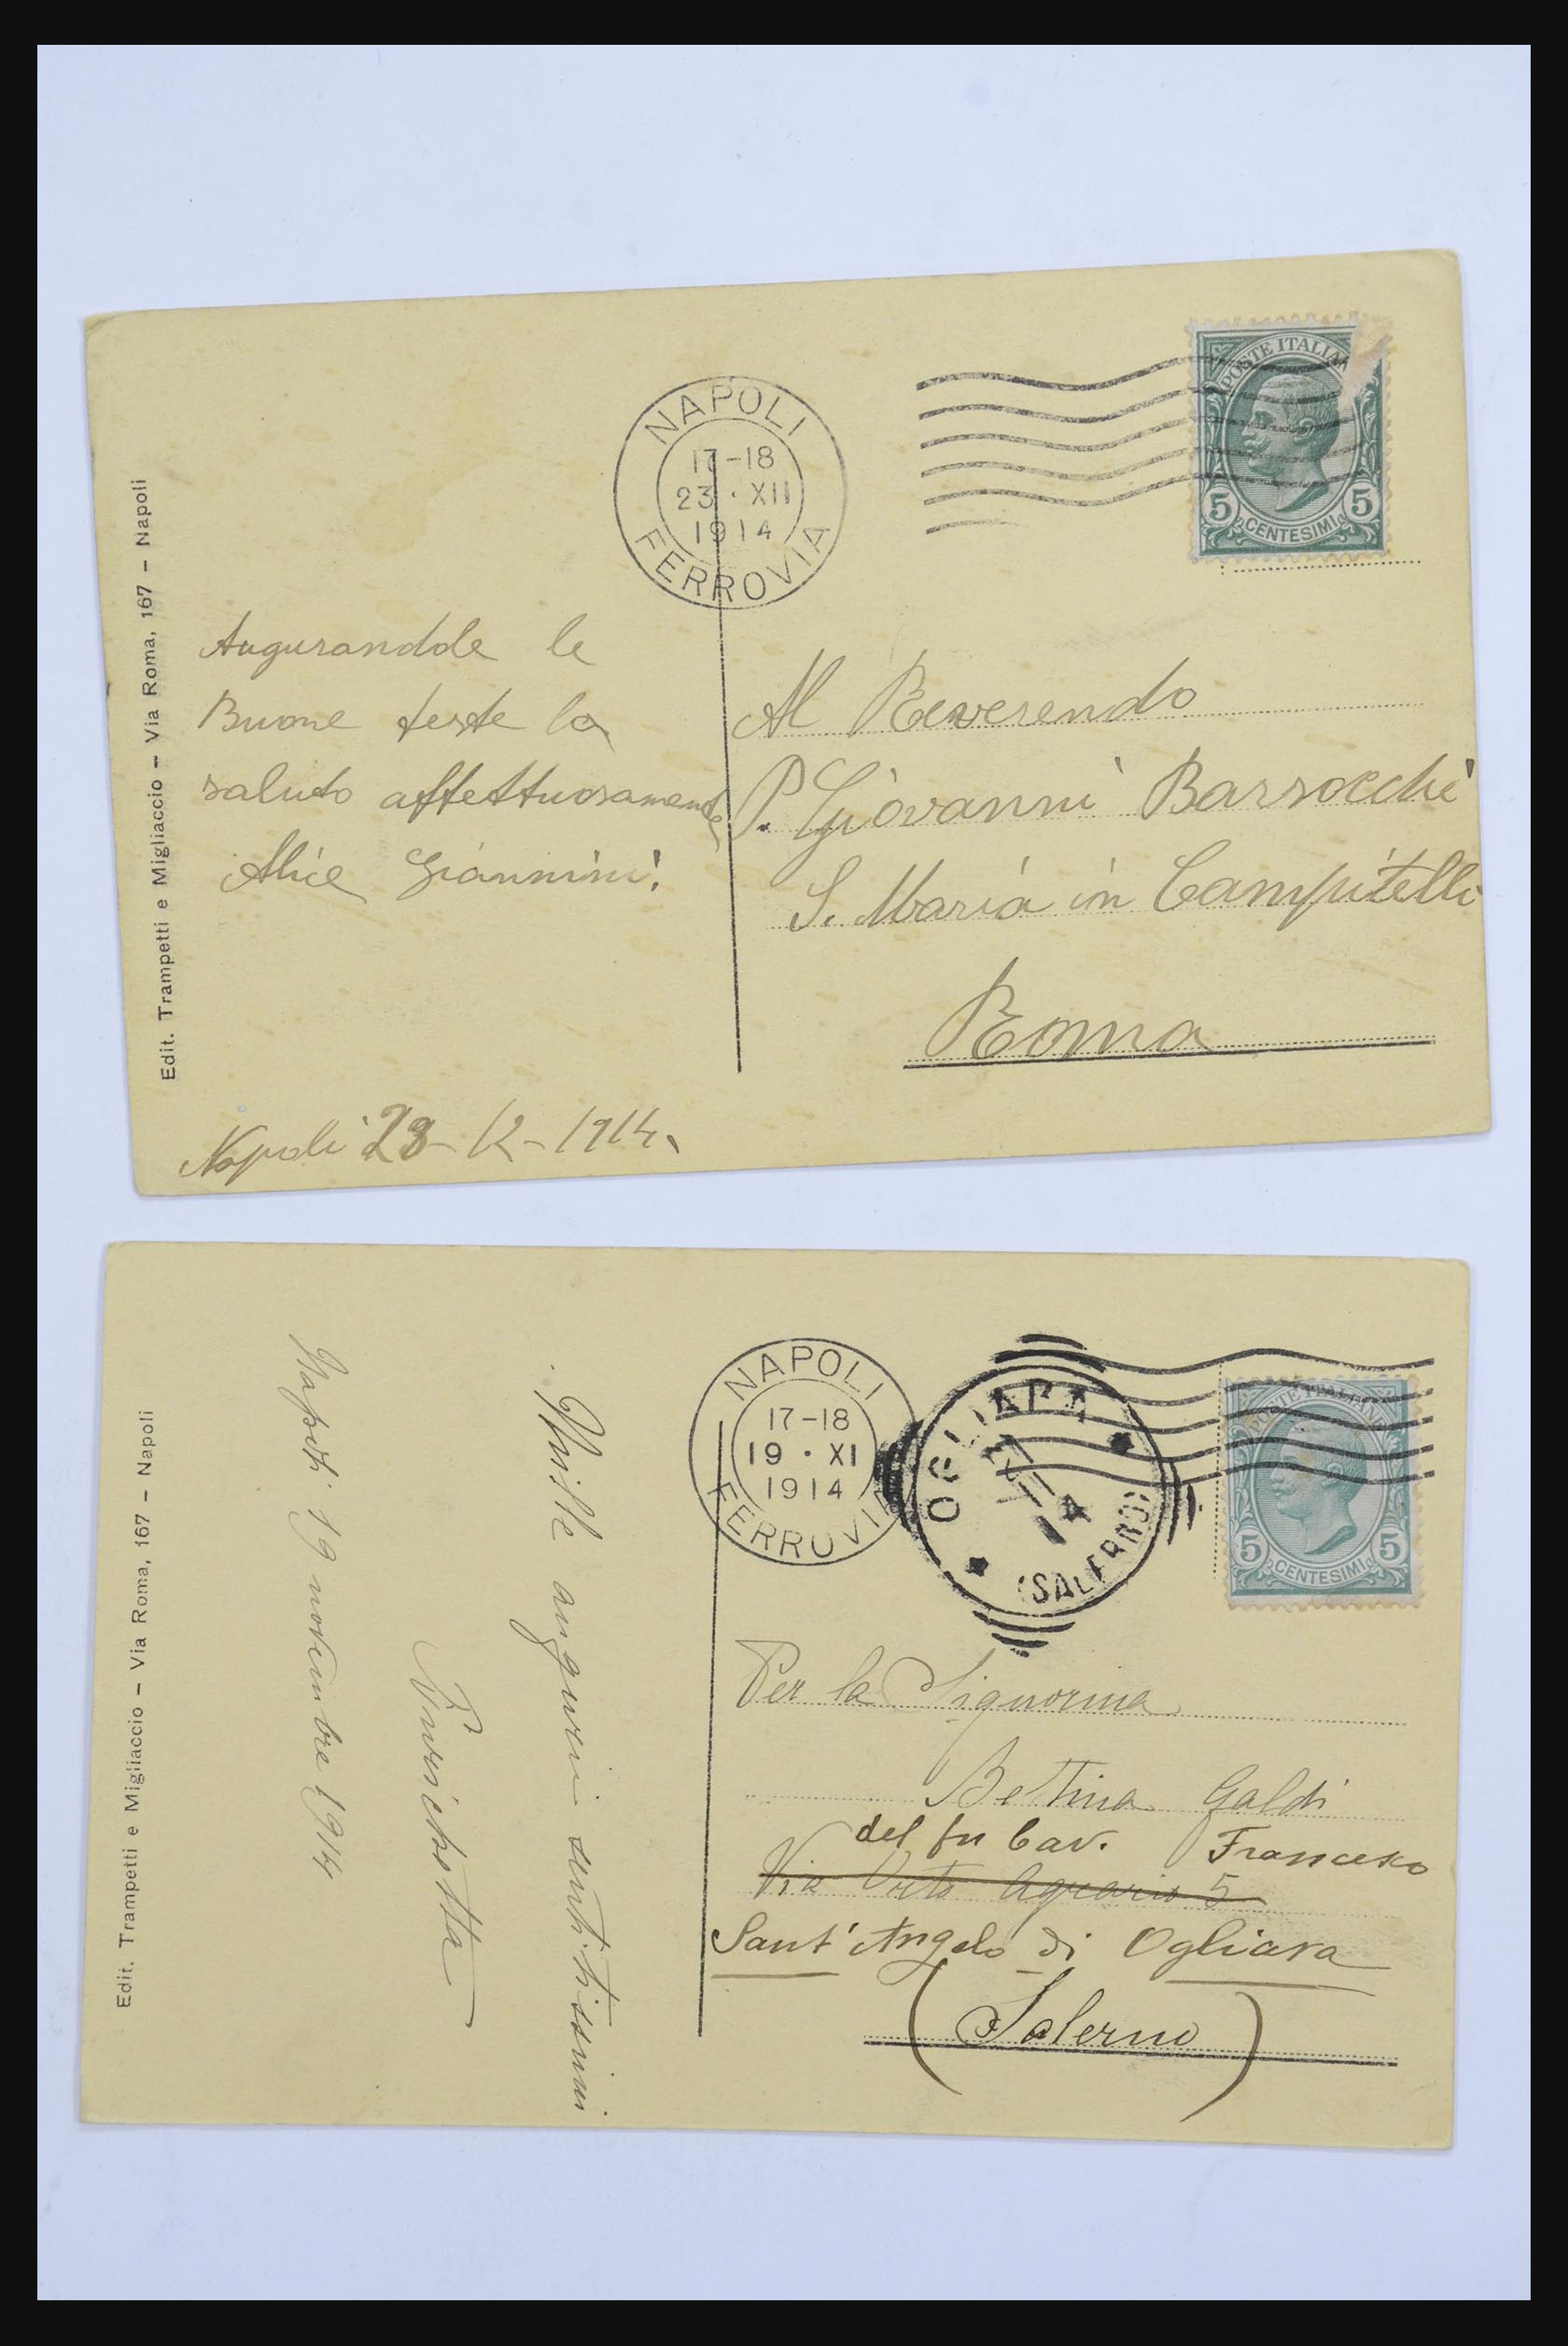 Edit. Trampetti e Migliaccio – Via Roma, 167 – Napoli
NAPOLI
17-18
23 · XII
1914
FERROVIA
POSTE ITALIANE
5 CENTESIMI 5
Augurandole le
Buone feste la
saluto affettuosamente
Alice Giannini.
Napoli 23-12-1914.
Al Reverendo
P. Giovanni Barrocchi
S. Maria in Campitelli
Roma
Edit. Trampetti e Migliaccio – Via Roma, 167 – Napoli
NAPOLI
17-18
19 · XI
1914
FERROVIA
OGLIARA
14
(SALERNO)
POSTE ITALIANE
5 CENTESIMI 5
Mille auguri sentitissimi
Napoli 19 novembre 1914
Per la Signorina
Bettina Galdi
del fu Cav. Francesco
Via Orto Agrario 5
Sant'Angelo di Ogliara
(Salerno)